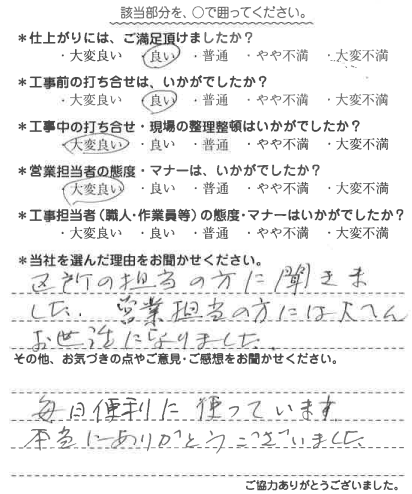 該当部分を、○で囲ってください。
*仕上がりには、ご満足頂けましたか?
・大変良い ・良い ・普通 ・やや不満 ・大変不満
*工事前の打ち合せは、いかがでしたか?
・大変良い ・良い ・普通 ・やや不満 ・大変不満
*工事中の打ち合せ・現場の整理整頓はいかがでしたか?
・大変良い ・良い ・普通 ・やや不満 ・大変不満
*営業担当者の態度・マナーは、いかがでしたか?
・大変良い ・良い ・普通 ・やや不満 ・大変不満
*工事担当者(職人・作業員等)の態度・マナーはいかがでしたか?
・大変良い ・良い ・普通 ・やや不満 ・大変不満
*当社を選んだ理由をお聞かせください。
区所の担当の方に聞きま
した。営業担当の方には大へん
お世話になりました。
その他、お気づきの点やご意見・ご感想をお聞かせください。
毎日便利に使っています
本当にありがとうございました。
ご協力ありがとうございました。